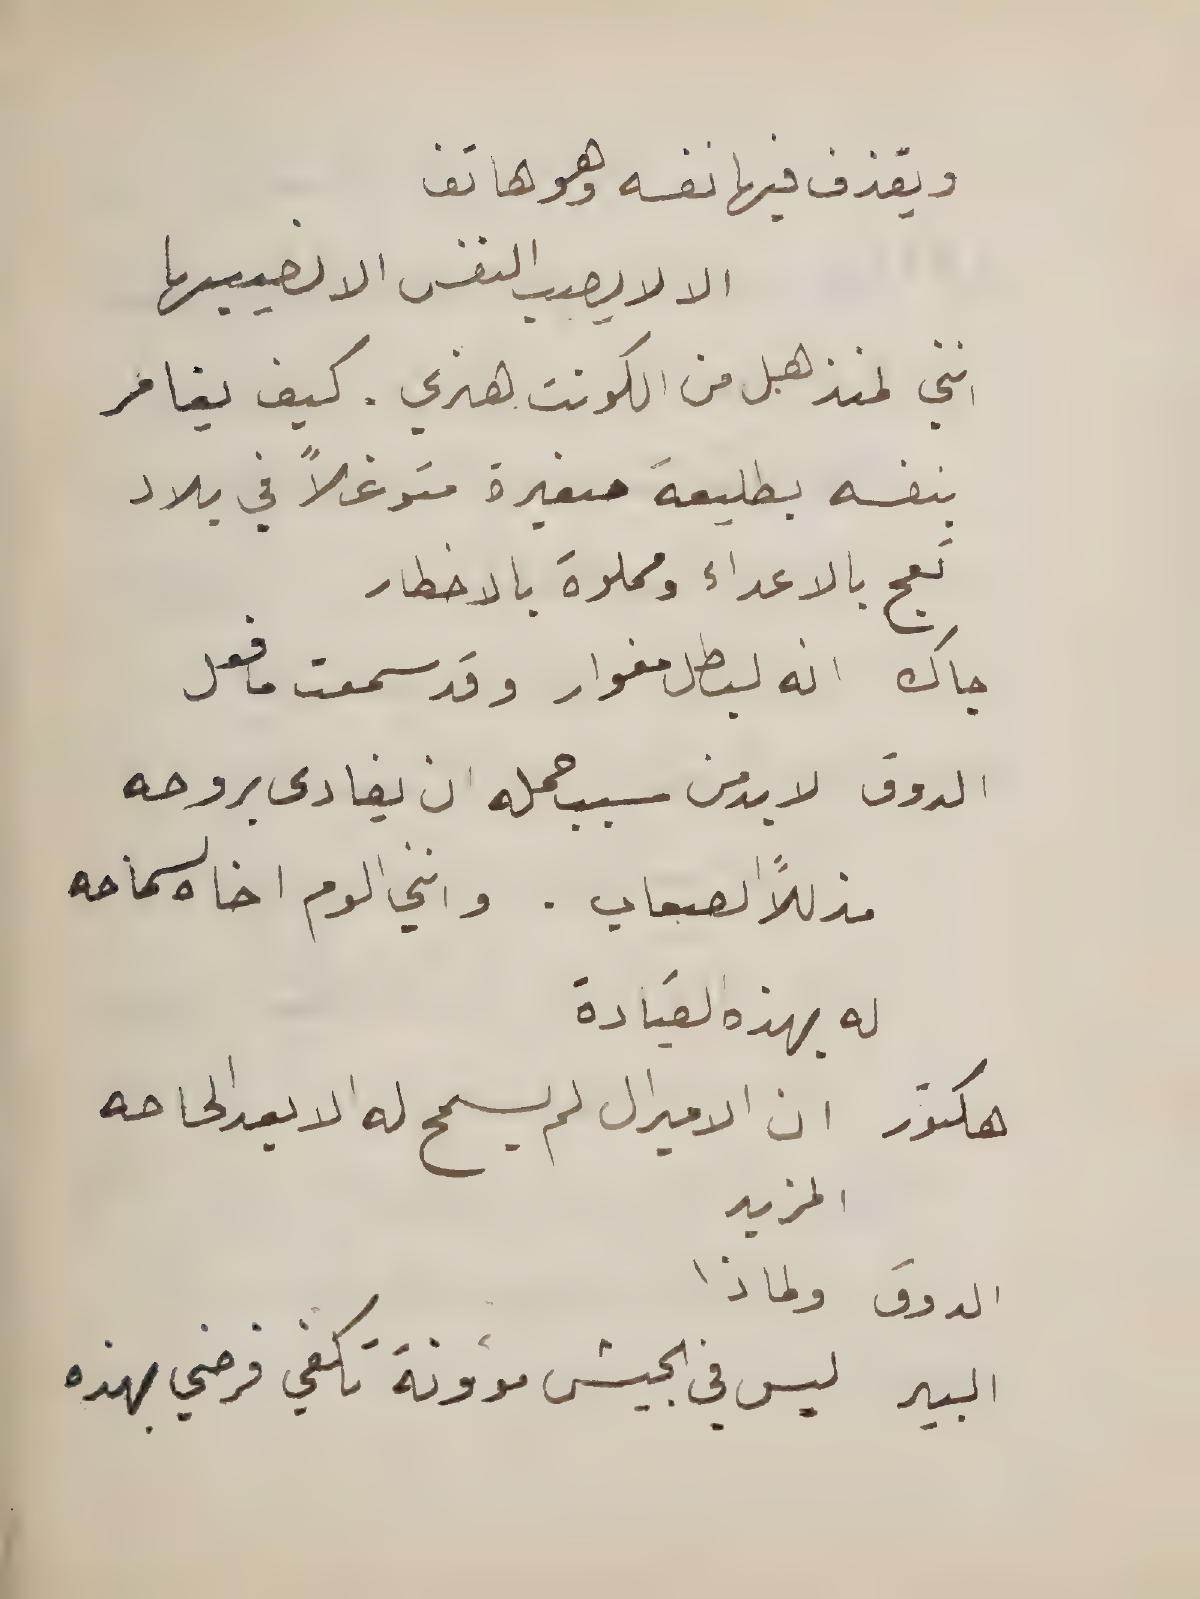 ويقذف فيها نفسه وهو هاتف
الا لا يصيب النفس الا نصيبها
انني لمنذهل من الكونت هنري . كيف يغامر
بنفسه بطليعة صغيرة متوغلاً في بلاد
تعج بالاعداء ومملوة بالاخطار
جاك انه لبطل مغوار وقد سمعت ما فعل
الدوق لا بد من سبب حمله ان يفادى بروحه
مذللاً الصعاب . وانني الوم اخاه لسماحه
له بهذه القيادة
هكتور ان الاميرال لم يسمح له الا بعد الحاحه
المزيد
الدوق ولماذا
البير ليس في الجيش موؤنة تكفي فرضي بهذه